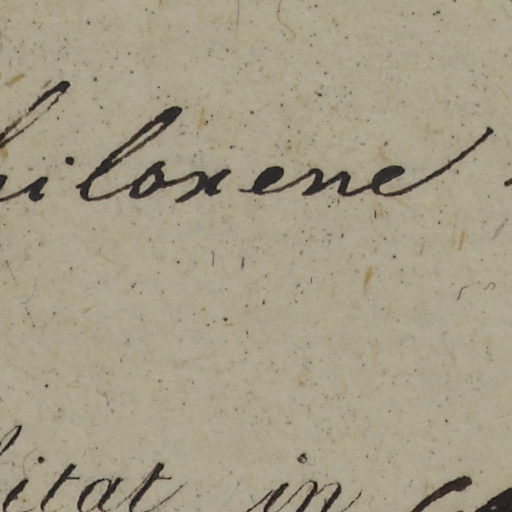 hiloxene
itat in